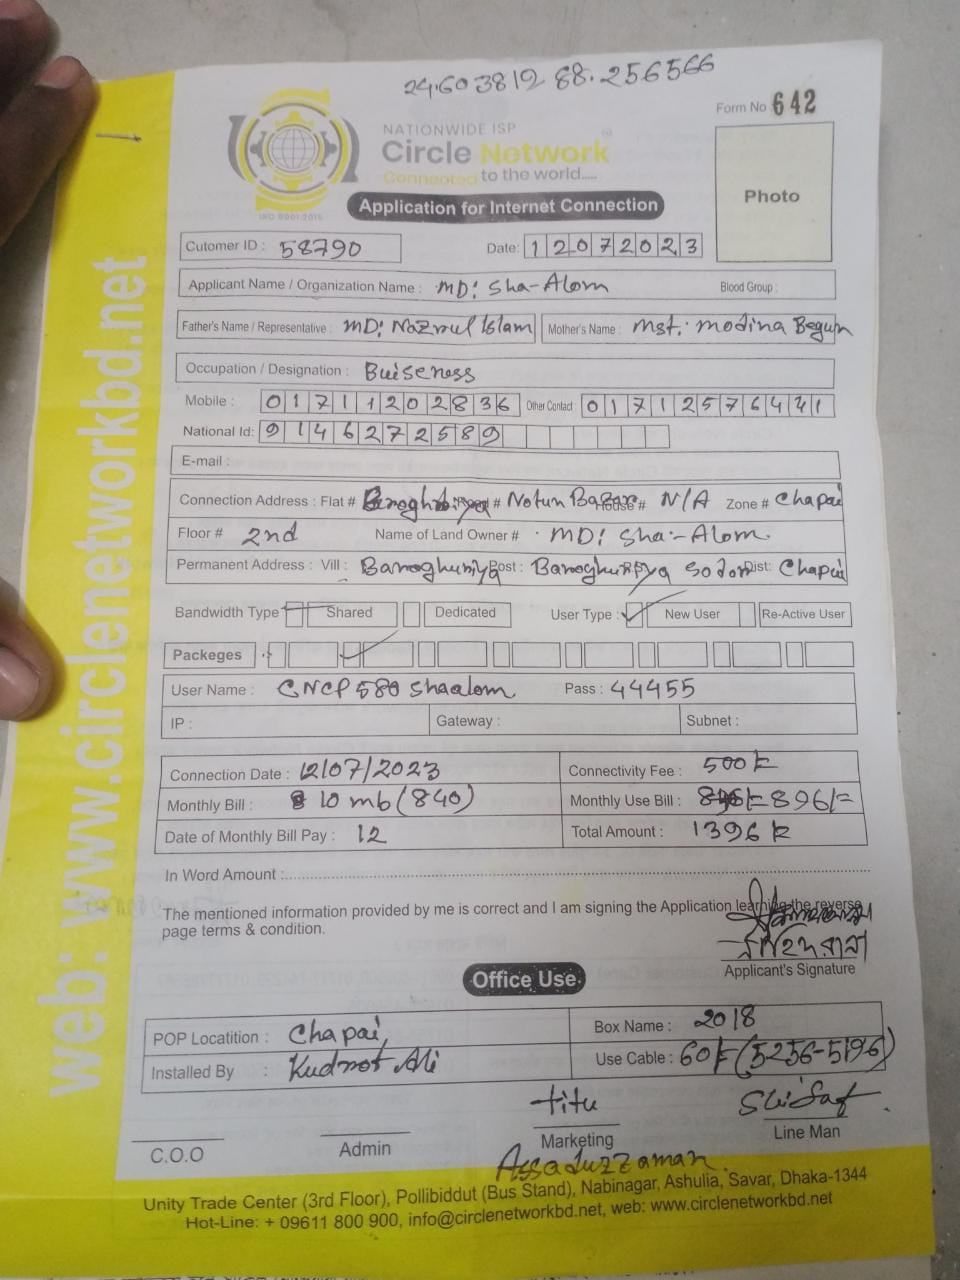 24.603812 88.256566
Form No 642
NATIONWIDE ISP
Circle Network
Connected to the world.....
ISO 9001:2015
Photo
Application for Internet Connection
Cutomer ID : 58790 Date: 12072023
Applicant Name / Organization Name : MD: Sha-Alom Blood Group :
Father's Name / Representative : MD: Nazmul Islam Mother's Name : Mst: Modina Begum
Occupation / Designation : Buiseness
Mobile : 01711202836 Other Contact : 01712576441
National Id: 9146272589
E-mail :
Connection Address : Flat # Road # Notun Bazar House # N/A Zone # Chapai
Floor # 2nd Name of Land Owner # MD: Sha-Alom.
Permanent Address : Vill : Post : Dist: Chapai
Bandwidth Type Shared Dedicated User Type : New User Re-Active User
Packeges
User Name : CNCP580 Shaalom Pass : 44455
IP : Gateway : Subnet :
Connection Date : 12/07/2023 Connectivity Fee : 500/=
Monthly Bill : 10 mb (840) Monthly Use Bill : 896/=
Date of Monthly Bill Pay : 12 Total Amount : 1396/=
In Word Amount :
The mentioned information provided by me is correct and I am signing the Application learning the reverse
page terms & condition.
Applicant's Signature
Office Use
POP Locatition : Chapai Box Name : 2018
Installed By : Kudrot Ali Use Cable : 60/= (5256-5196)
titu
C.O.O Admin Marketing Line Man
Assaduzzaman
Unity Trade Center (3rd Floor), Pollibiddut (Bus Stand), Nabinagar, Ashulia, Savar, Dhaka-1344
Hot-Line: + 09611 800 900, info@circlenetworkbd.net, web: www.circlenetworkbd.net
web: www.circlenetworkbd.net